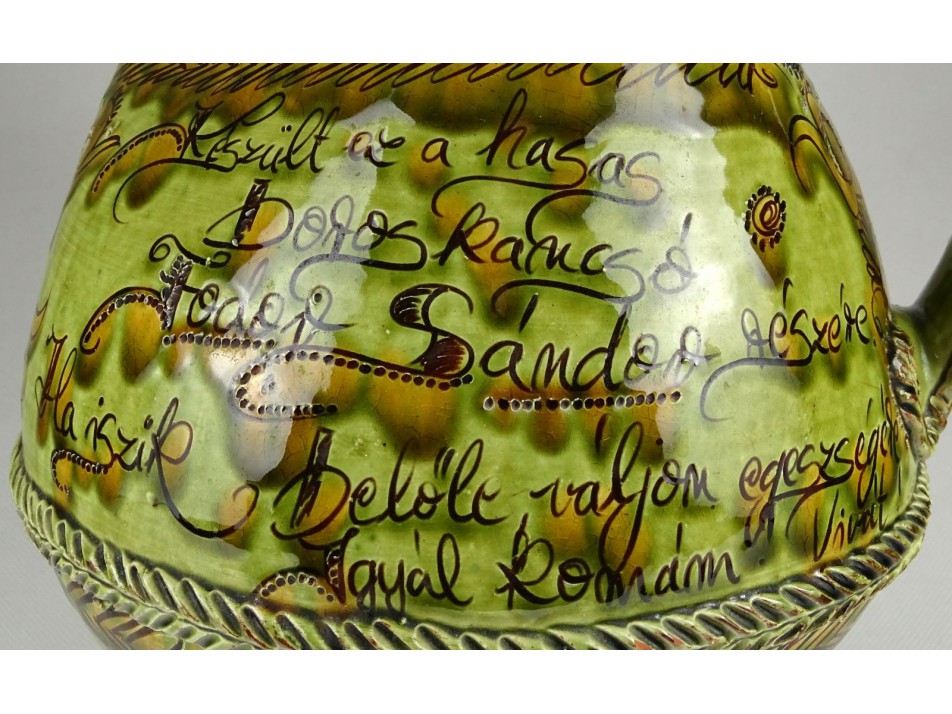 Készült az a hasas
boros kancsó
Fodor Sándor részére.
Ha iszik Belőle, váljon egeszségé
Igyál Komám! Vivát